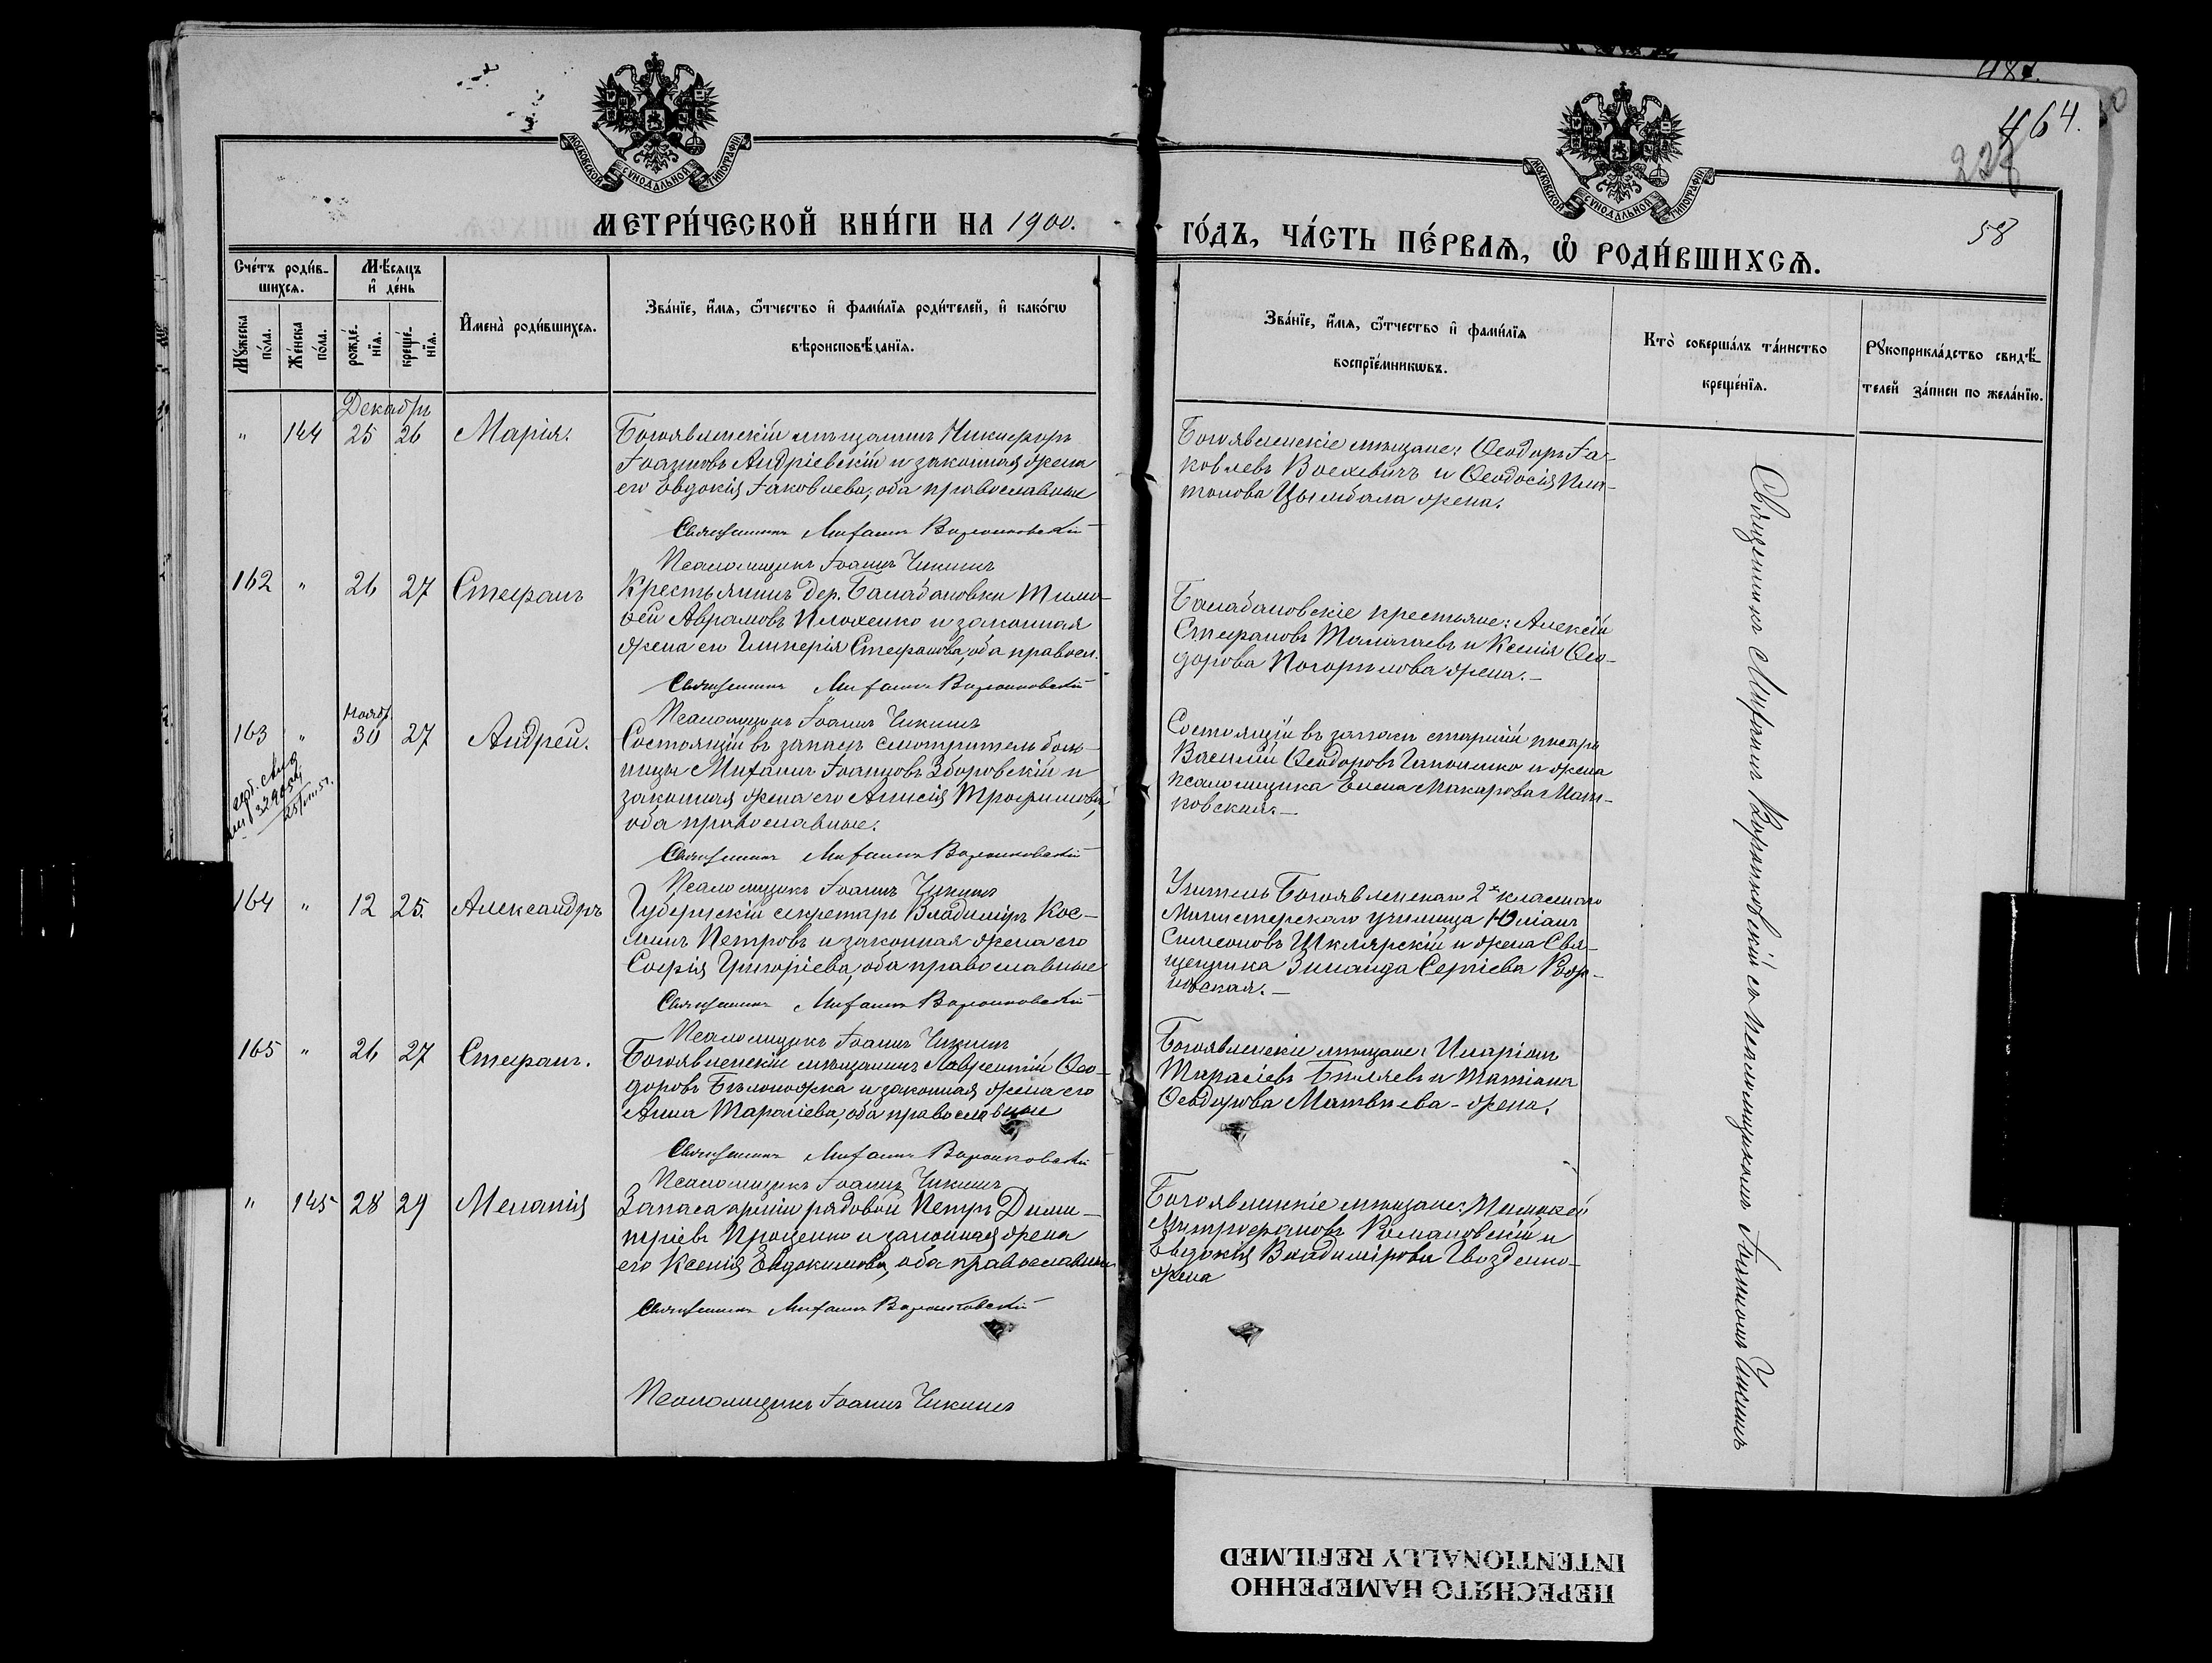 487.
464.
228
58
МОСКОВСКОЙ СѴНОДАЛЬНОЙ ТИПОГРАФІИ
МОСКОВСКОЙ СѴНОДАЛЬНОЙ ТИПОГРАФІИ
МЕТРИ́ЧЕСКОЙ КНИ́ГИ НА 1900.
ГО́ДЪ, ЧА́СТЬ ПЕ́РВАѦ, Ѽ РОДИ́ВШИХСѦ.
Сче́тъ роди́в-
шихсѧ.
Мѣ́сѧцъ
и҆ де́нь
Мꙋ́жеска по́ла.
Же́нска по́ла.
рожде́нїѧ.
креще́нїѧ.
И҆мена̀ роди́вшихсѧ.
Зва́нїе, и҆́мѧ, ѻ҆́тчество и҆ фами́лїѧ роди́телей, и҆ како́гѡ
вѣроисповѣ́данїѧ.
Зва́нїе, и҆́мѧ, ѻ҆́тчество и҆ фами́лїѧ
воспрїе́мникѡвъ.
Кто̀ соверша́лъ та́инство
креще́нїѧ.
Рꙋкоприкла́дство свидѣ́-
телей за́писи по жела́нїю.
Декабрь
" 144 25 26 Марія.
Богоявленскій мѣщанинъ Никифоръ
Іоанновъ Андріевскій и законная жена
его Евдокія Іаковлева, оба православные
Священникъ Михаилъ Воронковскій
Псаломщикъ Іоаннъ Чикинъ
Богоявленскіе мѣщане: Ѳеодоръ Іа-
ковлевъ Воскевичъ и Ѳеодосія Пла-
тонова Цымбала жена.
162 " 26 27 Стефанъ
Крестьянинъ дер. Балабановки Тимо-
ѳей Аврамовъ Плохенко и законная
жена его Гликерія Стефанова, оба правосл.
Священникъ Михаилъ Воронковскій
Псаломщикъ Іоаннъ Чикинъ
Балабановскіе крестьяне: Алексій
Стефановъ и Ксенія Ѳео-
дорова Погорѣлова жена.-
Ноябр.
163 " 30 27 Андрей.
25/VIII 51.
Состоящій въ запасѣ смотритель боль-
ницы Михаилъ Іоанновъ Зборовскій и
законная жена его Анисія Трофимова,
оба православные.
Священникъ Михаилъ Воронковскій
Псаломщикъ Іоаннъ Чикинъ
Состоящій въ запасѣ старшій писарь
Василій Ѳеодоровъ Гапоненко и жена
псаломщика Елена Макарова Мат-
ковская.-
164 " 12 25. Александръ
Губернскій секретарь Владиміръ Кос-
минъ Петровъ и законная жена его
Софія Григоріева, оба православные
Священникъ Михаилъ Воронковскій
Псаломщикъ Іоаннъ Чикинъ
Учитель Богоявленскаго 2х класснаго
Министерскаго училища Юліанъ
Симеоновъ Шклярскій и жена Свя-
щенника Зинаида Сергіева
165 " 26 27 Стефанъ.
Богоявленскій мѣщанинъ Лаврентій Ѳео-
доровъ Бѣлоножка и законная жена его
Анна Тарасіева, оба православные
Священникъ Михаилъ Воронковскій
Псаломщикъ Іоаннъ Чикинъ
Богоявленскіе мѣщане: Иларіонъ
Тарасіевъ Бѣляевъ и Татіана
Ѳеодорова Матвѣева - жена.
" 145 28 29 Меланія
Запаса арміи рядовой Петръ Дими-
тріевъ Проценко и законная жена
его Ксенія Евдокимова, оба православные
Священникъ Михаилъ Воронковскій
Псаломщикъ Іоаннъ Чикинъ
Богоявленскіе мѣщане:
Митрофановъ Романовскій и
Евдокія Владимірова Гвозденко-
жена
Священникъ Михаилъ Воронковскій съ псаломщикомъ Іоанномъ Чикинъ
ПЕРЕСНЯТО НАМЕРЕННО
INTENTIONALLY REFILMED